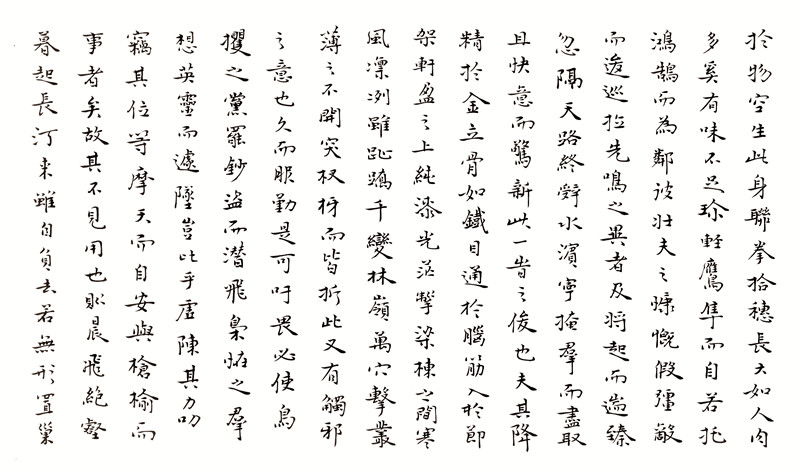 於物空生此身聯拳拾穗長大如人肉
多奚有味不足珍輕鷹隼而自若托
鴻鵠而為鄰彼壯夫之慷慨假彊敵
而逡巡拉先鳴之異者及將起而遄臻
忽隔天路終辭水濱寧掩羣而盡取
且快意而驚新此一時之俊也夫其降
精於金立骨如鐵目通於腦筋入於節
架軒盈之上純漆光茫掣梁棟之間寒
風凜冽雖趾蹻千變林嶺萬穴擊叢
薄之不開突杈枒而皆折此又有觸邪
之意也久而服勤是可吁畏必使鳥
攫之黨罷鈔盜而潛飛梟怪之羣
想英靈而遽墜豈比乎虛陳其力叨
竊其位等摩天而自安與槍榆而
事者矣故其不見用也則晨飛絕壑
暮起長汀来雖自負去若無形置巢